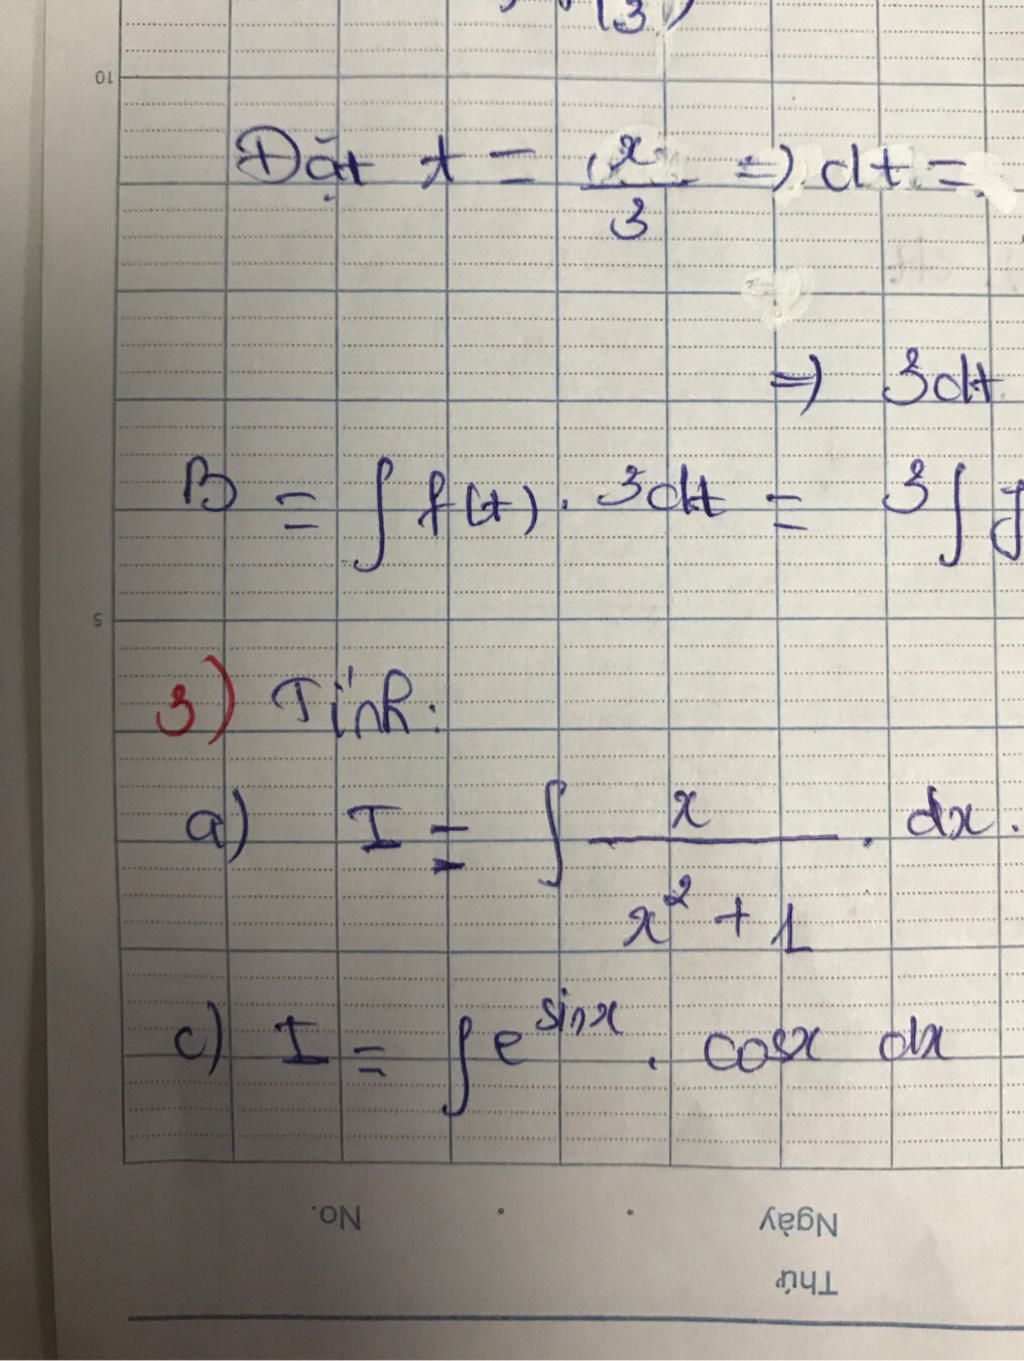 (3)
10
Đặt t = x/3 => dt =
=> 3dt
B = ∫ f(t) . 3dt = 3 ∫
5
3) Tính:
a) I = ∫ x/(x² + 1) . dx.
c) I = ∫ e^sinx . cosx dx
No. . .
Ngày
Thứ